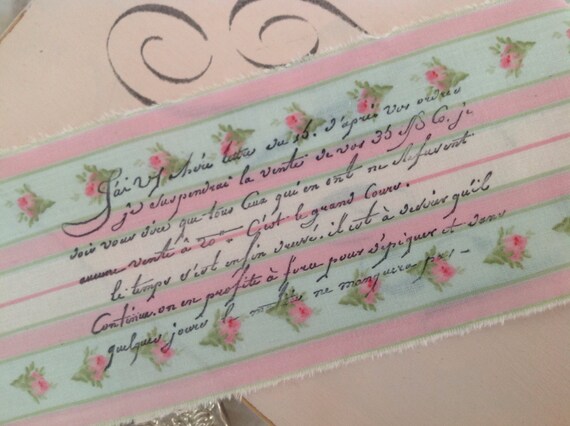 J'ai V/ chère lettre du 15. d'après vos ordres
je suspendrai la vente de vos 35 B Co. je
vois vous dire que tous Ceux qui en ont ne Refusent
aucune vente à 20 C'est le grand Cours.
le temps s'est enfin il est à désirer qu'il
Continue. on en profite à force pour dépiquer et dans
quelques jours le ne manquera pas